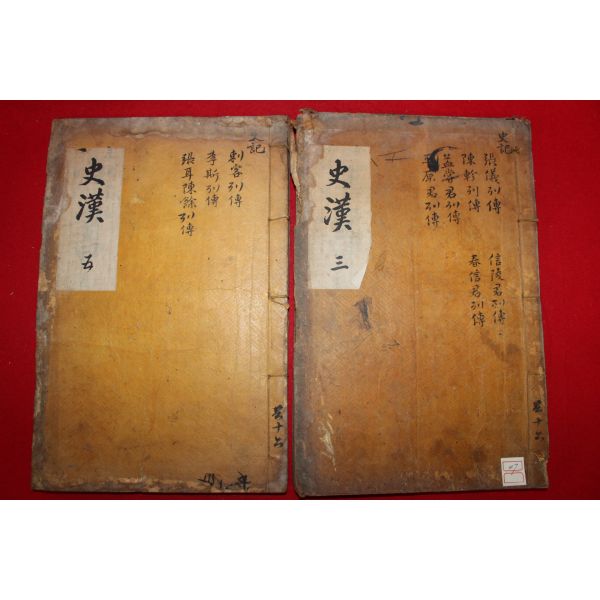 史漢 五
史記
刺客列傳
李斯列傳
張耳陳餘列傳
共十六
史漢 三
史記
張儀列傳
陳軫列傳
孟嘗君列傳
平原君列傳
信陵君列傳
春信君列傳
共十六